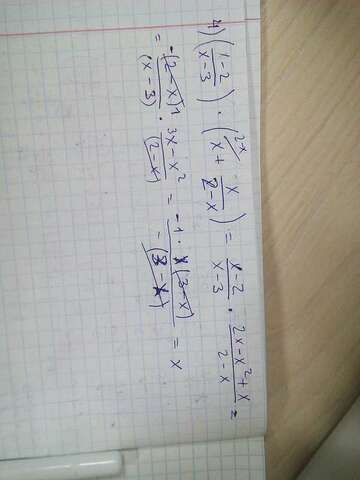 4) ((x-2)/(x-3)) · (x + x/(2-x)) = (x-2)/(x-3) · (2x-x²+x)/(2-x) =
= -(2-x)1/(x-3) · 3x-x²/(2-x) = -1·x(3-x)/-(3-x) = x